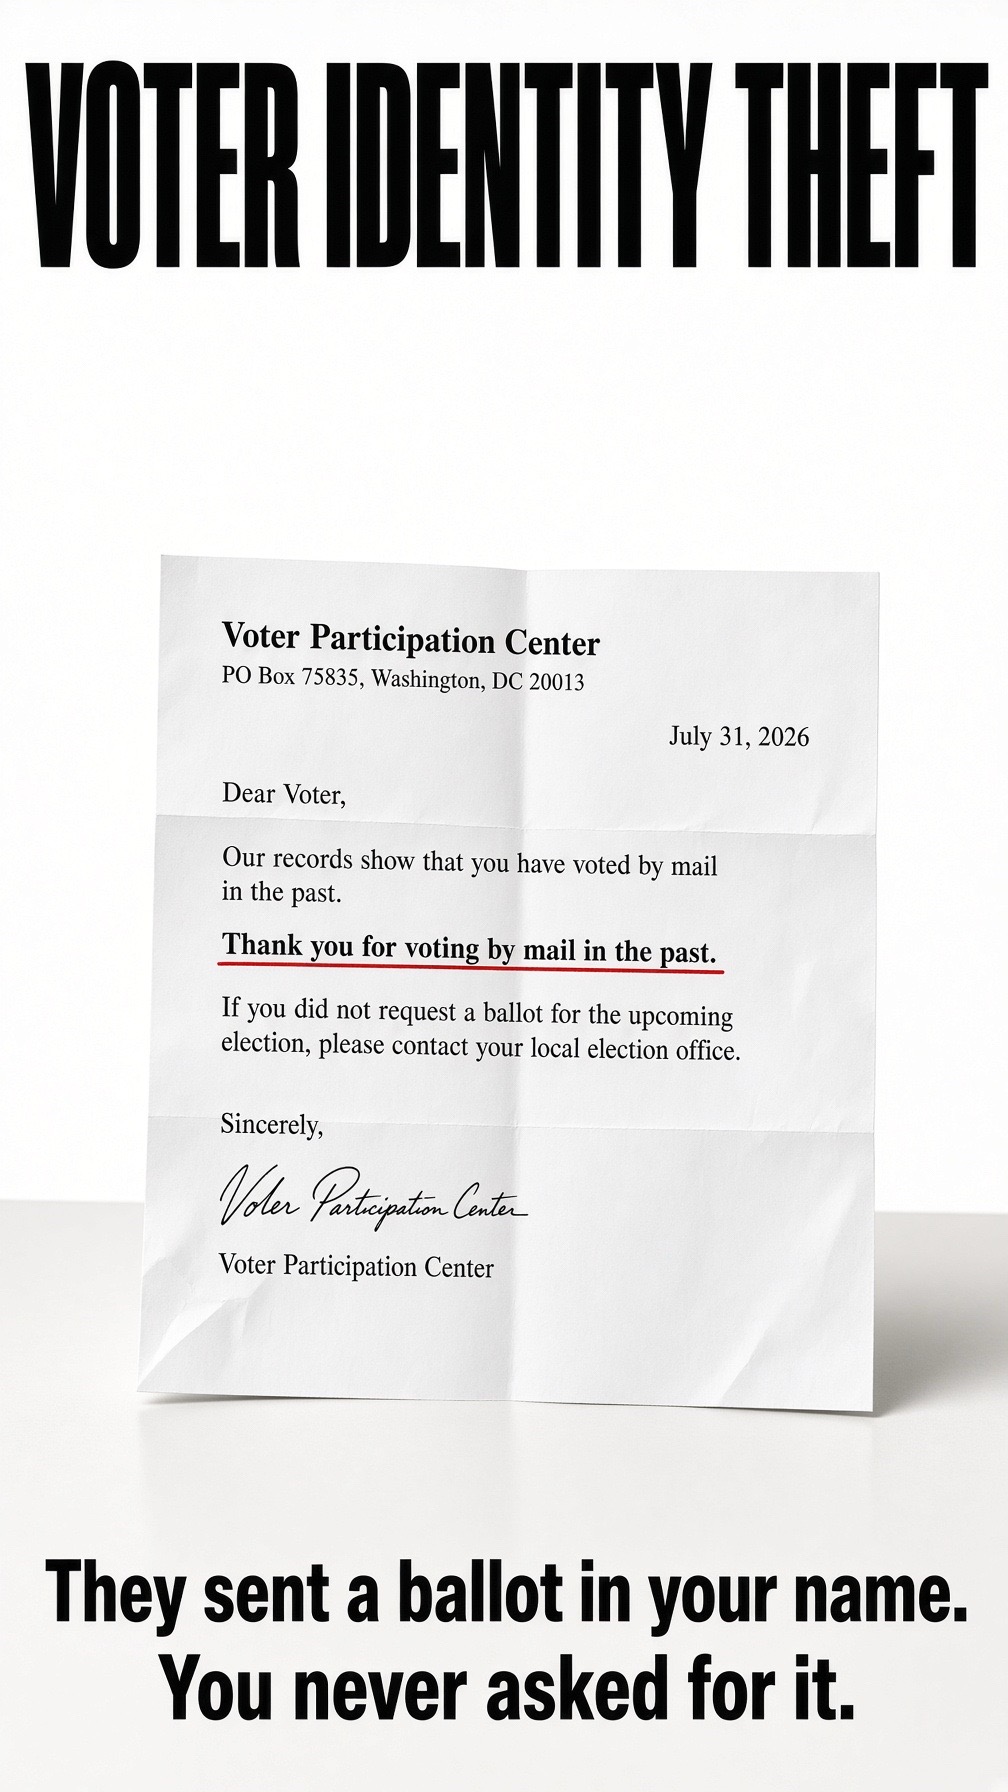 VOTER IDENTITY THEFT
Voter Participation Center
PO Box 75835, Washington, DC 20013
July 31, 2026
Dear Voter,
Our records show that you have voted by mail
in the past.
Thank you for voting by mail in the past.
If you did not request a ballot for the upcoming
election, please contact your local election office.
Sincerely,
Voter Participation Center
Voter Participation Center
They sent a ballot in your name.
You never asked for it.